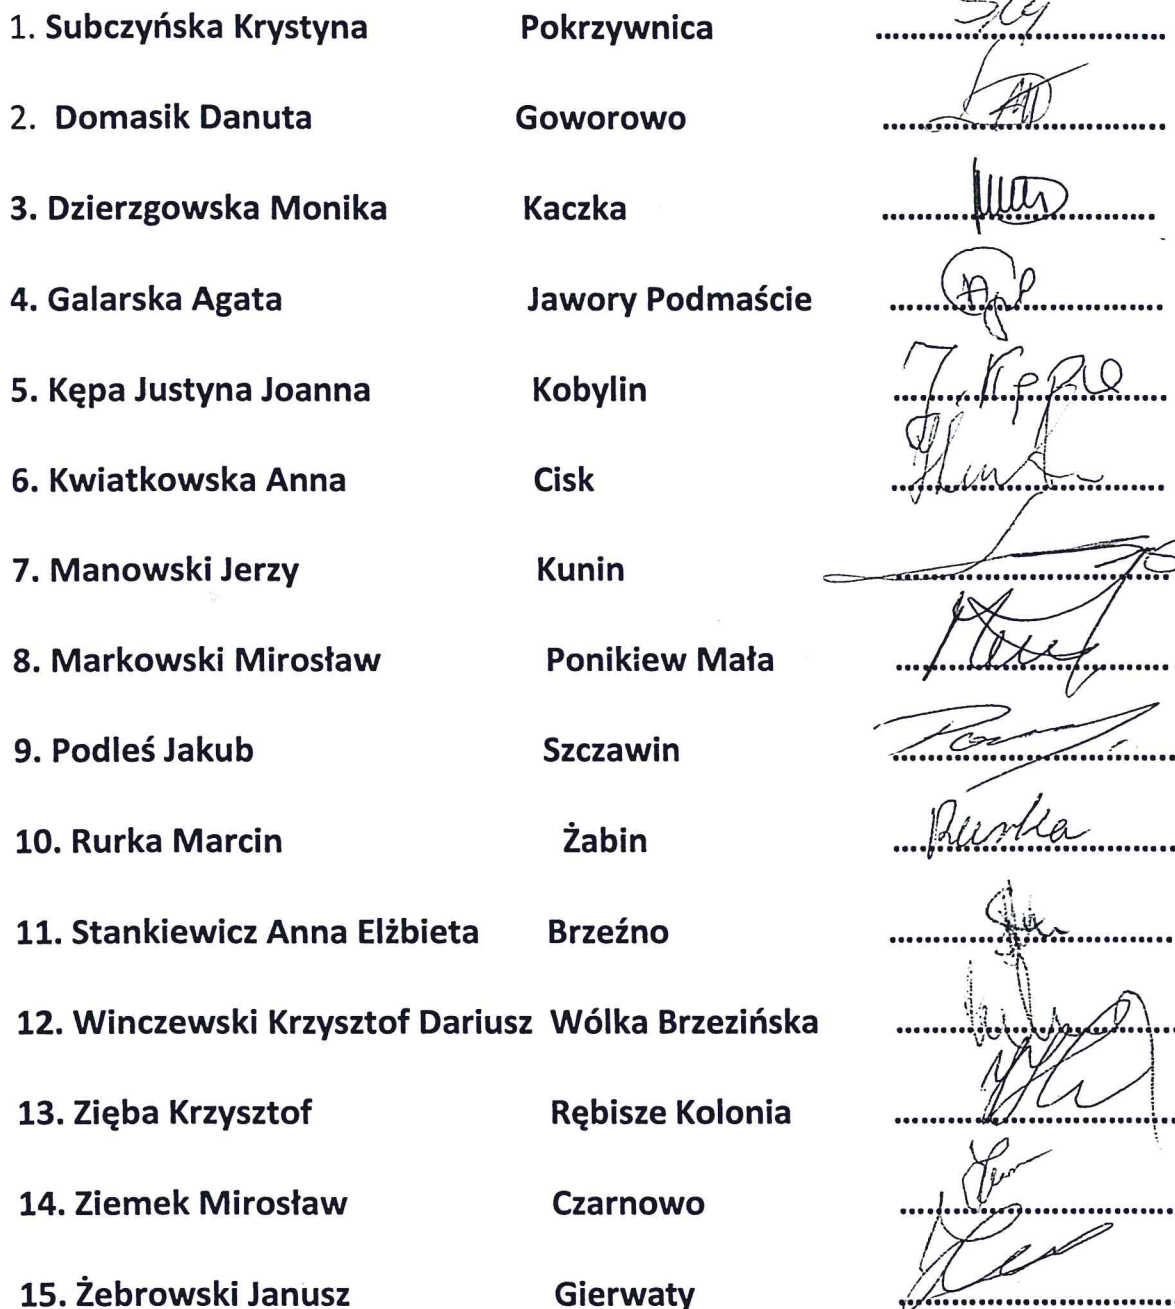 1. Subczyńska Krystyna Pokrzywnica
2. Domasik Danuta Goworowo
3. Dzierzgowska Monika Kaczka
4. Galarska Agata Jawory Podmaście
5. Kępa Justyna Joanna Kobylin J. Kępa
6. Kwiatkowska Anna Cisk
7. Manowski Jerzy Kunin
8. Markowski Mirosław Ponikiew Mała
9. Podleś Jakub Szczawin
10. Rurka Marcin Żabin Rurka
11. Stankiewicz Anna Elżbieta Brzeźno
12. Winczewski Krzysztof Dariusz Wólka Brzezińska
13. Zięba Krzysztof Rębisze Kolonia
14. Ziemek Mirosław Czarnowo
15. Żebrowski Janusz Gierwaty